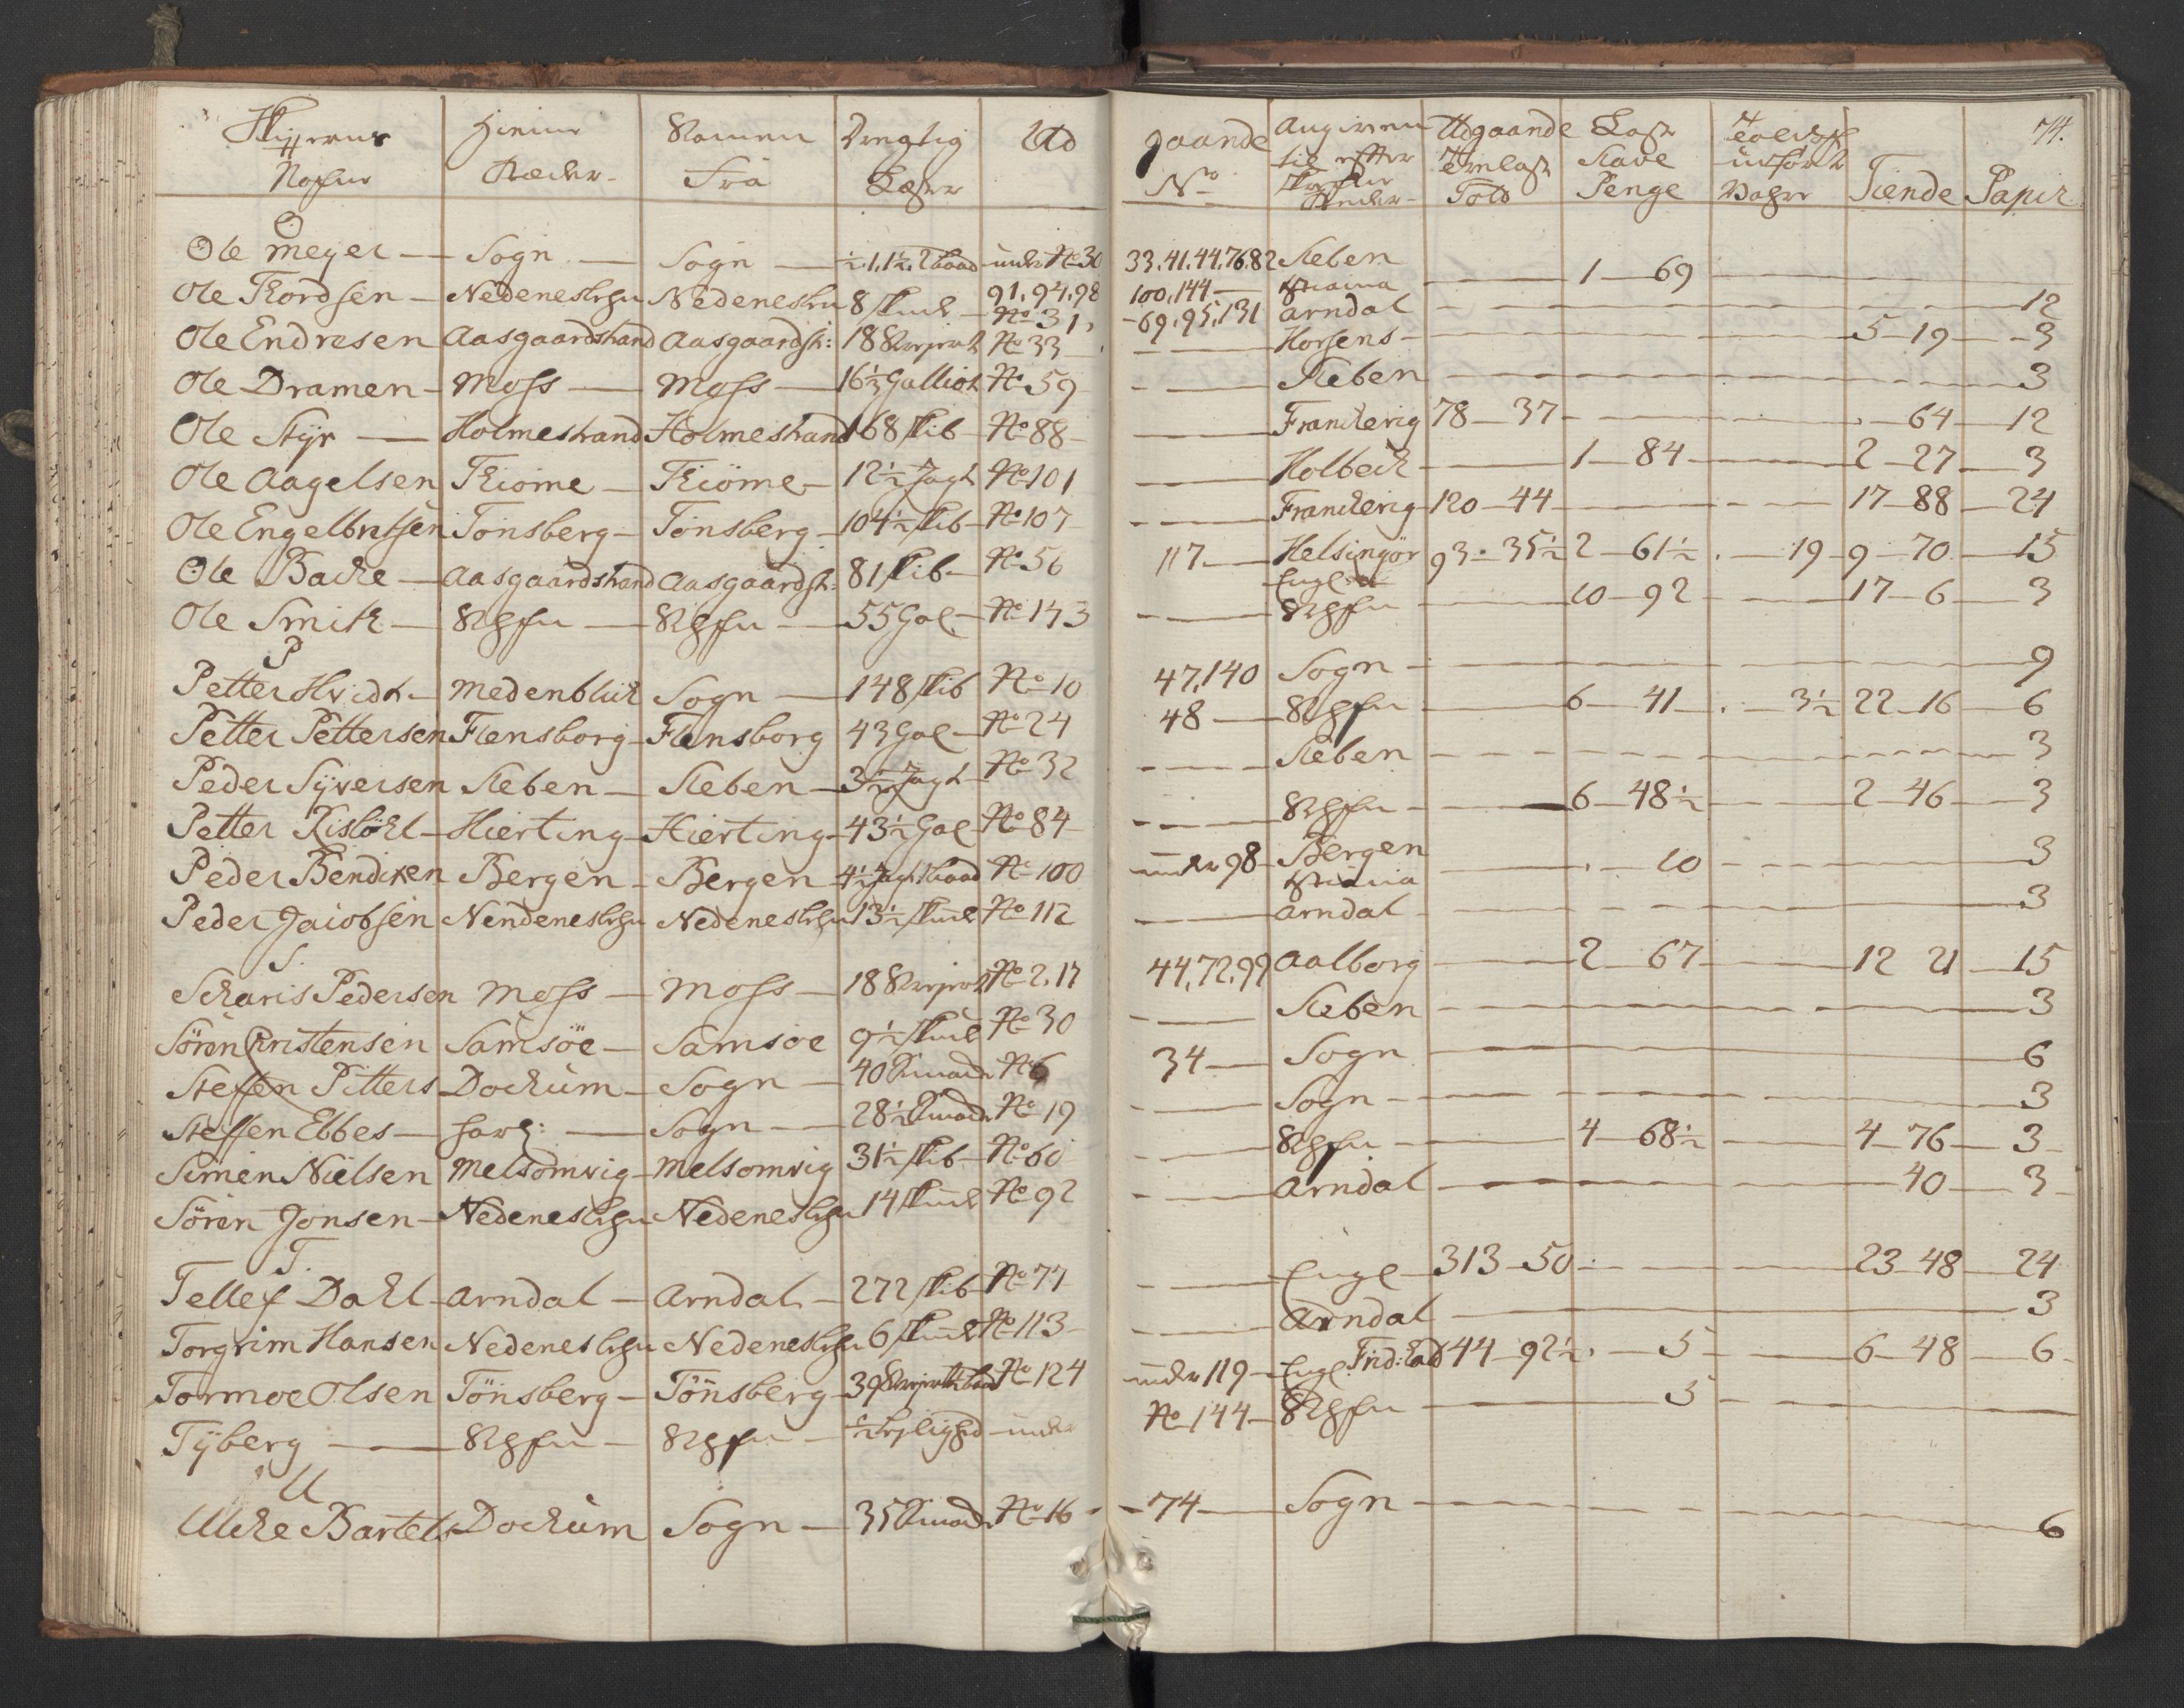 Skippernes Nafne | Hiemme Steder | Kommen Fra | Drægtig Læster | Ud | gaaende No | Angiven til efter Steder | Udgaaende Trælast Told | Last Penge | udført Vahre | Tiende | Papir | 74.
O
Ole Meyer — Sogn — Sogn — ½, 1, 1½, 2 baad under No 30 | 33, 41, 44, 76, 82 Kleben | 1 — 69
Ole Thordsen — Nedenes Nedenes 8 — 91, 94, 98 No 31, | 100, 144 — 69, 95, 131 Arndal — 12
Ole Endresen Aasgaardstrand Aasgaardstr: 18 No 33 | Horsens — 5 — 19 — 3
Ole Dramen — Moss — Moss — 16½ Galliot No 59 | Kleben — 3
Ole Styr — Holmestrand Holmestrand 168 Skib No 88 | 78 — 37 — 64 — 12
Ole Aagelsen Tkiöme — Tkiöme — 12½ Jagt No 101 | Holbeck — 1 — 84 — 2 — 27 — 3
Ole Engelbretsen Tönsberg — Tönsberg — 104½ Skib No 107 | 120 — 44 — 17 — 88 — 24
Ole Backe — Aasgaardstrand Aasgaardstr: 81 Skib — No 56 | 117 — Helsingör Engl: 93 — 35½ 2 — 61½ — 19 — 9 — 70 — 15
Ole Smith — Khfn — Khfn — 55 Gal — No 143 | Khfn — 10 — 92 — 17 — 6 — 3
P
Petter Hvidt — Medenblick Sogn — 148 Skib No 10 | 47, 140 Sogn — 9
Petter Pettersen Flensborg — Flensborg 43 Gal — No 24 | 48 — Khfn — 6 — 41 — 3½ 22 — 16 — 6
Peder Syversen Kleben — Kleben — 3½ Jagt — No 32 | Kleben — 3
Petter Hierting — Hierting — 43½ Gal — No 84 | Khfn — 6 — 48½ — 2 — 46 — 3
Peder Bendixen Bergen — Bergen — 4½ Jagt No 100 | under 98 — Bergen — 10 — 3
Peder Jacobsen Nendenes Nedenes 13½ No 112 | Arndal — 3
S.
Zcharis Pedersen Moss — Moss — 18 No 2, 17 | 44, 72, 99 Aalborg — 2 — 67 — 12 21 — 15
Sören Christensen Samsöe — Samsöe 9½ No 30 | Kleben — 3
Steffen Pitters Dockum — Sogn — 40 No 6 | 34 — Sogn — 6
Steffen Ebbes — — Sogn — 28½ No 19 | Sogn — 3
Simen Nielsen Melsomvig — Melsomvig 31½ Skib No 60 | Khfn — 4 — 68½ — 4 — 76 — 3
Sören Jonsen — Nedenes Nedenes 14 No 92 | Arndal — 40 — 3
T.
Tellef Dahl — Arndal — Arndal — 272 Skib No 77 | Engl — 313 — 50 — 23 — 48 — 24
Torgrim Hansen Nedenes Nedenes 6 No 113 | Arndal — 3
Tormoe Olsen Tönsberg — Tönsberg — 39 No 124 | under 119 — Engl. Frid: Stad 44 — 92½ — 5 — 6 — 48 — 6
Tyberg — Khfn — Khfn — ½ under | No 144 — Khfn — 5
U
Ulcke Bartels Dockum Sogn — 35 No 16 | 74 — Sogn — 6